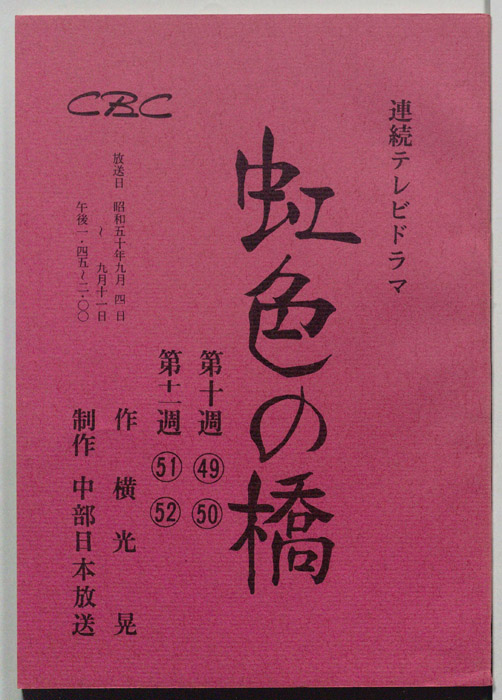 連続テレビドラマ
虹色の橋
第十週 ㊾ ㊿
第十一週 51 52
CBC
放送日 昭和五十年九月 四日
〜 九月十一日
午後一・四五〜二・〇〇
作 横光 晃
制作 中部日本放送